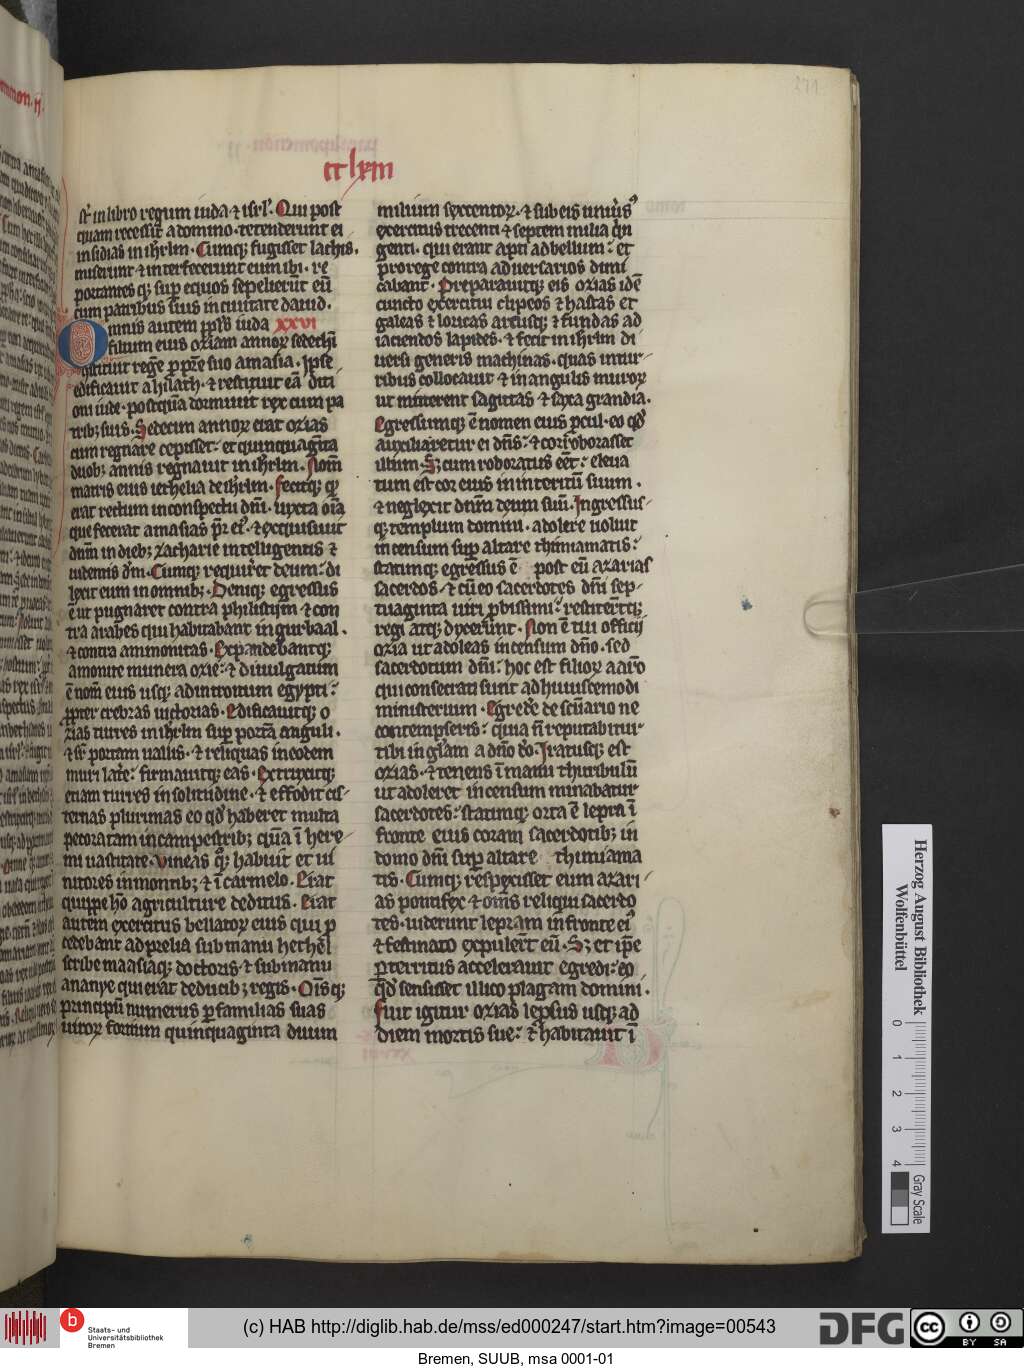 cclxiii
271
st̄ in libro regum iuda ⁊ isrl̓. Qui post
quam recessit a domino. tetenderunt ei
insidias in ihrl̄m. Cumq; fugisset lachis.
miserunt ⁊ interfecerunt eum ibi. re
portantes q; sup̄ equos sepelierūt eū
cum patribus suis in ciuitate dauid.
Omnis autem ppl̄s iuda xxvi
filium eius oziam annoꝝ sedechī
ꝯstituit regē ꝓ pr̄e suo amasia. Ipse
edificauit ahilath. ⁊ restituit eā diti
oni iude. postqūa dormiuit rex cum pa
trib; suis. Sedecim annoꝝ erat ozias
cum regnare cepisset. et quinquagīta
duob; annis regnauit in ihrl̄m. Nom̄
matris eius iethelia de ihrl̄m. fecitq; qꝫ
erat rectum in conspectu dn̄i. iuxta oīa
que fecerat amasias pr̄ eiꝰ. ⁊ exquisiuit
dn̄m in dieb; zacharie intelligentis ⁊
uidentis dm̄. Cumq; requireret deum. di
rexit eum in omnib;. Deniq; egressus
ē ut pugnaret contra philistijm ⁊ con
tra arabes qui habitabant in gurbaal.
⁊ contra ammonitas. Expandebantq;
amonite munera ozie. ⁊ diuulgatum
ē nom̄ eius usq; ad introitum egypti.
ꝓpter crebras uictorias. Edificauitq; o
zias turres in ihrl̄m sup̄ portā anguli.
⁊ sr̄ portam uallis. ⁊ reliquas in eodem
muri late. firmauitq; eas. Extruxitq;
etiam turres in solitudine. ⁊ effodit cis
ternas plurimas eo qd̓ haberet multa
pecora tam in campestrib; q̄m ī here
mi uastitate. Vineas qꝫ habuit et ui
nitores in montib; ⁊ ī carmelo. Erat
quippe hō agriculture deditus. Erat
autem exercitus bellatoꝝ eius qui ꝓ
cedebant ad prelia sub manu hethel̄
scribe maasiaq; doctoris. ⁊ sub manu
ananye qui erat de ducib; regis. Oīsq;
principū numerus ꝑ familias suas
uiroꝝ fortium quinquaginta duum
milium sexcentoꝝ. ⁊ sub eis uniūsꝰ
exercitus trecenti ⁊ septem milia qn̄
genti. qui erant apti ad bellum. et
pro rege contra aduersarios dimi
cabant. Preparauitq; eis ozias idē
cuncto exercitui clipeos ⁊ hastas et
galeas ⁊ loricas arcusq; ⁊ fundas ad
iaciendos lapides. ⁊ fecit in ihrl̄m di
uersi generis machinas. quas in tur
ribus collocauit ⁊ in angulis muroꝝ
ut mitterent sagittas ⁊ saxa grandia.
Egressumq; ē nomen eius ꝓcul. eo qd̓
auxiliaretur ei dn̄s. ⁊ corroborasset
illum. Sꝫ cum roboratus eēt. eleua
tum est cor eius in interitū suum.
⁊ neglexit dn̄m deum suū. Ingressus
q; templum domini. adolere uoluit
incensum sup̄ altare thimiamatis.
statimq; egressus ē post eū azarias
sacerdos. ⁊ cū eo sacerdotes dn̄i sep
tuaginta uiri ꝓbissimi. restiterūtq;
regi atq; dyxerunt. Non ē tui officij
ozia ut adoleas incensum dn̄o. sed
sacerdotum dn̄i. hoc est filioꝝ aarō
qui consecrati sunt ad huiuscemodi
ministerium. Egredere de scūario ne
contempseris. quia n̄ reputabitur
tibi in gl̄am a dn̄o do. Iratusq; est
ozias. ⁊ tenens ī manu thuribulū
ut adoleret incensum minabatur
sacerdotes. statimq; orta ē lepra ī
fronte eius coram sacerdotib; in
domo dn̄i sup̄ altare thimiama
tis. Cumq; respexisset eum azari
as pontifex ⁊ om̄s reliqui sacerdo
tes. uiderunt lepram in fronte eiꝰ
⁊ festinato expulert̄ eū. Sꝫ et ip̄e
ꝑterritus accelerauit egredi. eo
qd̓ sensisset illico plagam domini.
Fuit igitur ozias leprsus usq; ad
diem mortis sue. ⁊ habitauit ī
Herzog August Bibliothek
Wolfenbüttel
0 1 2 3 4
Gray Scale
b
Staats- und
Universitätsbibliothek
Bremen
(c) HAB http://diglib.hab.de/mss/ed000247/start.htm?image=00543
DFG
cc BY SA
Bremen, SUUB, msa 0001-01